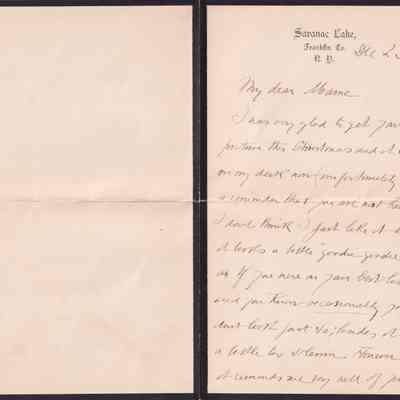 Saranac Lake,
Franklin Co.
N. Y.
Dec 2
My dear Mame
I was very glad to get your
picture this Christmas and it
on my desk now unfortunately
a reminder that you are not
I dont think I just like it
it looks a little "goodie goodie
as if you were on your best
and you know occasionally you
dont look just so; besides it
a little too solemn. However
it reminds me very well of